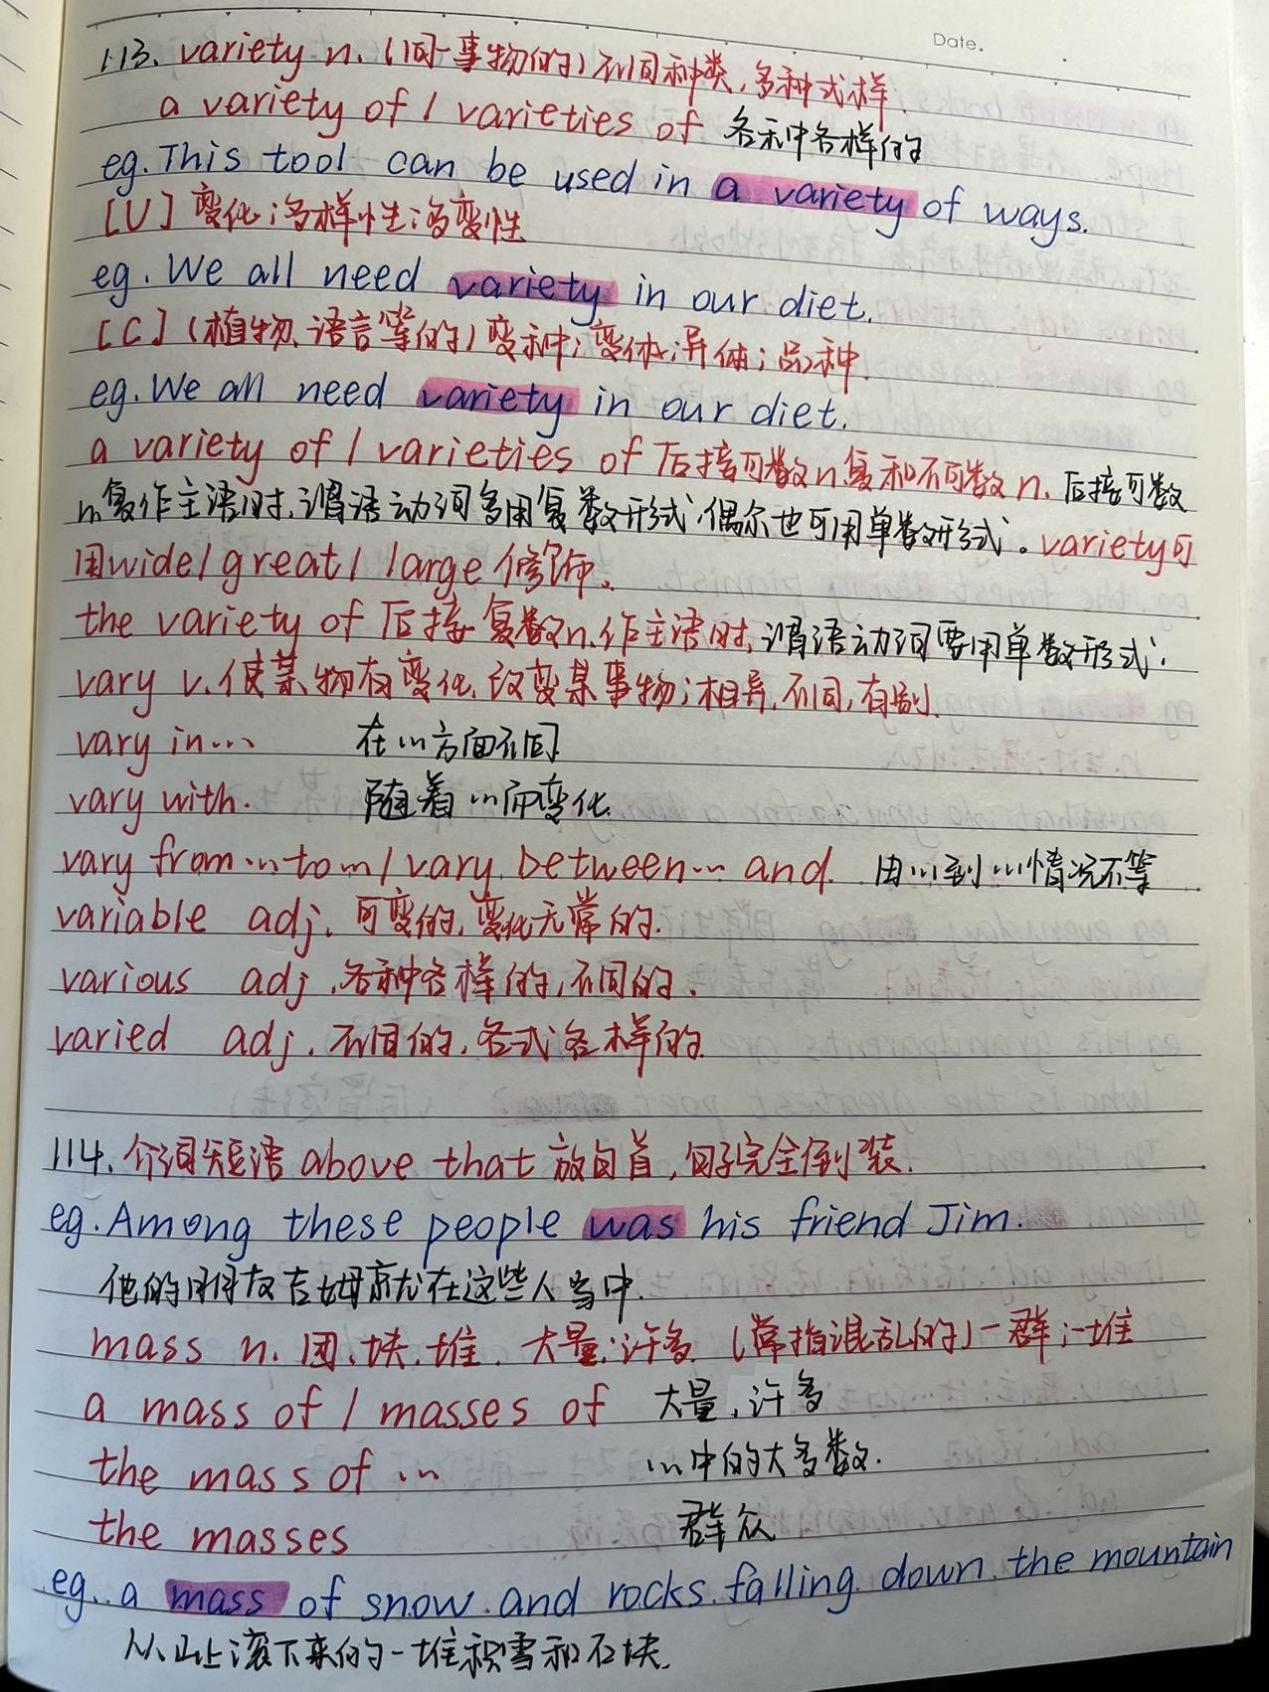 Date.
113. variety n. (同一事物的)不同种类,多种式样
a variety of / varieties of 各种各样的
eg. This tool can be used in a variety of ways.
[U] 变化;多样性;多变性
eg. We all need variety in our diet.
[C] (植物、语言等的)变种;变体;异体;品种.
eg. We all need variety in our diet.
a variety of / varieties of 后接可数n复和不可数n. 后接可数
n复作主语时,谓语动词多用复数形式,偶尔也可用单数形式。variety可
用wide/great/large修饰。
the variety of 后接复数n.作主语时,谓语动词要用单数形式.
vary v.使某物有变化,改变某事物;相异,不同,有别.
vary in… 在…方面不同
vary with. 随着…而变化
vary from…to…/vary between… and. 由…到…情况不等
variable adj. 可变的,变化无常的.
various adj.各种各样的,不同的.
varied adj. 不同的,各式各样的
114.介词短语above that放句首,句子完全倒装.
eg. Among these people was his friend Jim.
他的朋友吉姆就在这些人当中.
mass n. 团.块.堆. 大量;许多 (常指混乱的)一群;一堆
a mass of / masses of 大量,许多
the mass of … …中的大多数.
the masses 群众
eg. a mass of snow and rocks falling down the mountain
从山上滚下来的一堆积雪和石块.